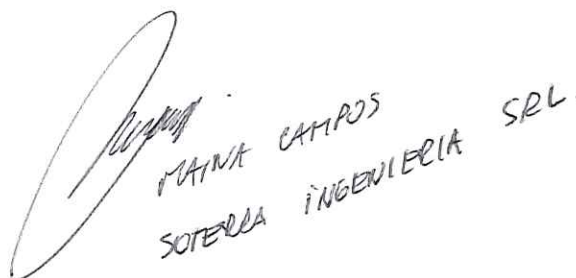 MAINA CAMPOS
SOTERRA INGENIERIA SRL.